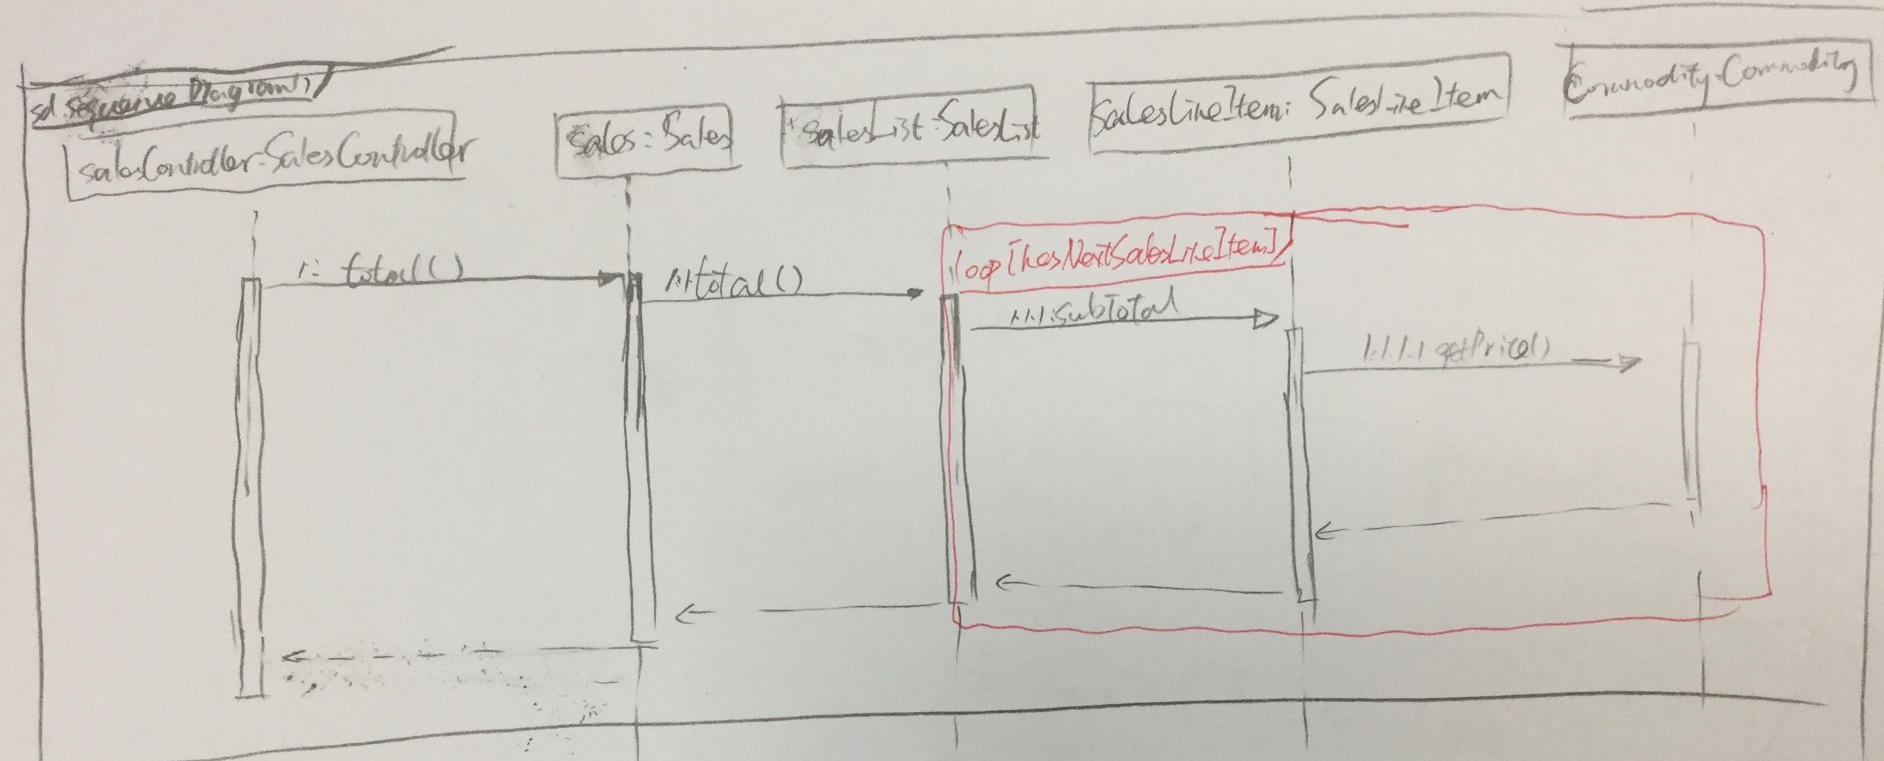 sd sequence Diagram1
salesController:SalesController
sales:Sales
salesList:SalesList
SalesLineItem: SalesLineItem
Commodity:Commodity
loop [hasNextSalesLineItem]
1: total()
1.1:total()
1.1.1:subTotal
1.1.1.1 getPrice()